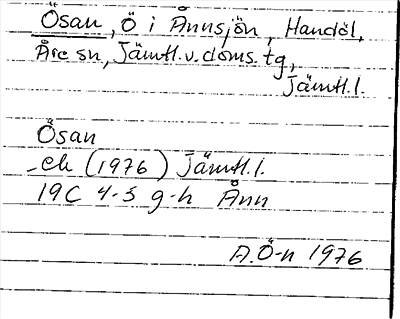 Ösan, ö i Ånnsjön, Handöl,
Åre sn, Jämtl.v.doms.tg,
Jämtl.l.
Ösan
-ek (1976) Jämtl.l.
19C 4-5 g-h Ånn
A.Ö-n 1976